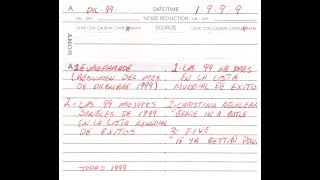 A DIC 99 DATE/TIME 1.9.9.9
NOISE REDUCTION
SOURCE
SONY
A
1. EUROPARADE
(RESUMEN DEL MES
DE DICIEMBRE 1999)
2. LAS 99 MEJORES
SINGLES DE 1999
EN LA LISTA MUNDIAL
DE EXITOS
TOP 40 1999
1- LAS 99 MEJORES
EN LA LISTA
MUNDIAL DE EXITOS
2- CHRISTINA AGUILERA
"GENIE IN A BOTTLE
3- FIVE
"IF YA GETTIN DOWN